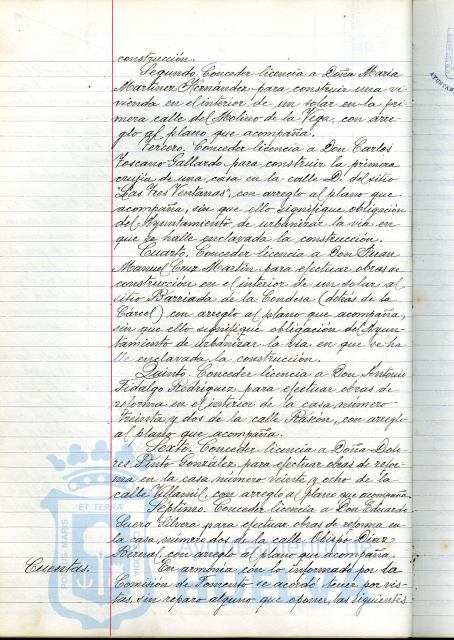 construcción.
Segundo. Conceder licencia a Doña María
Martínez Hernández para construir una vi-
vienda en el interior de un solar en la pri-
mera calle del Molino de la Vega, con arre-
glo al plano que acompaña.
Tercero. Conceder licencia a Don Carlos
Toscano Gallardo para construir la primera
crujía de una casa en la calle D. del sitio
"Las Tres Ventanas", con arreglo al plano que
acompaña, sin que ello signifique obligación
del Ayuntamiento de urbanizar la vía en
que se halle enclavada la construcción.
Cuarto. Conceder licencia a Don Juan
Manuel Cruz Martín para efectuar obras de
construcción en el interior de un solar al
sitio Barriada de la Condesa (detrás de la
Cárcel) con arreglo al plano que acompaña,
sin que ello signifique obligación del Ayun-
tamiento de urbanizar la vía en que se ha-
lle enclavada la construcción.
Quinto. Conceder licencia a Don Antonio
Fidalgo Rodríguez para efectuar obras de
reforma en el interior de la casa número
treinta y dos de la calle Rascón, con arreglo
al plano que acompaña.
Sexto. Conceder licencia a Doña Dolo-
res Pinto González para efectuar obras de refor-
ma en la casa número veinte y ocho de la
calle Villamil, con arreglo al plano que acompaña.
Septimo. Conceder licencia a Don Eduardo
Suero Silvera para efectuar obras de reforma en
la casa número dos de la calle Obispo Díaz
Bernal, con arreglo al plano que acompaña.
Cuentas. En armonía con lo informado por la
Comisión de Fomento se acordó tener por vis-
tas, sin reparo alguno que oponer, las siguientes
ET TERRÆ
PORTUS MARIS